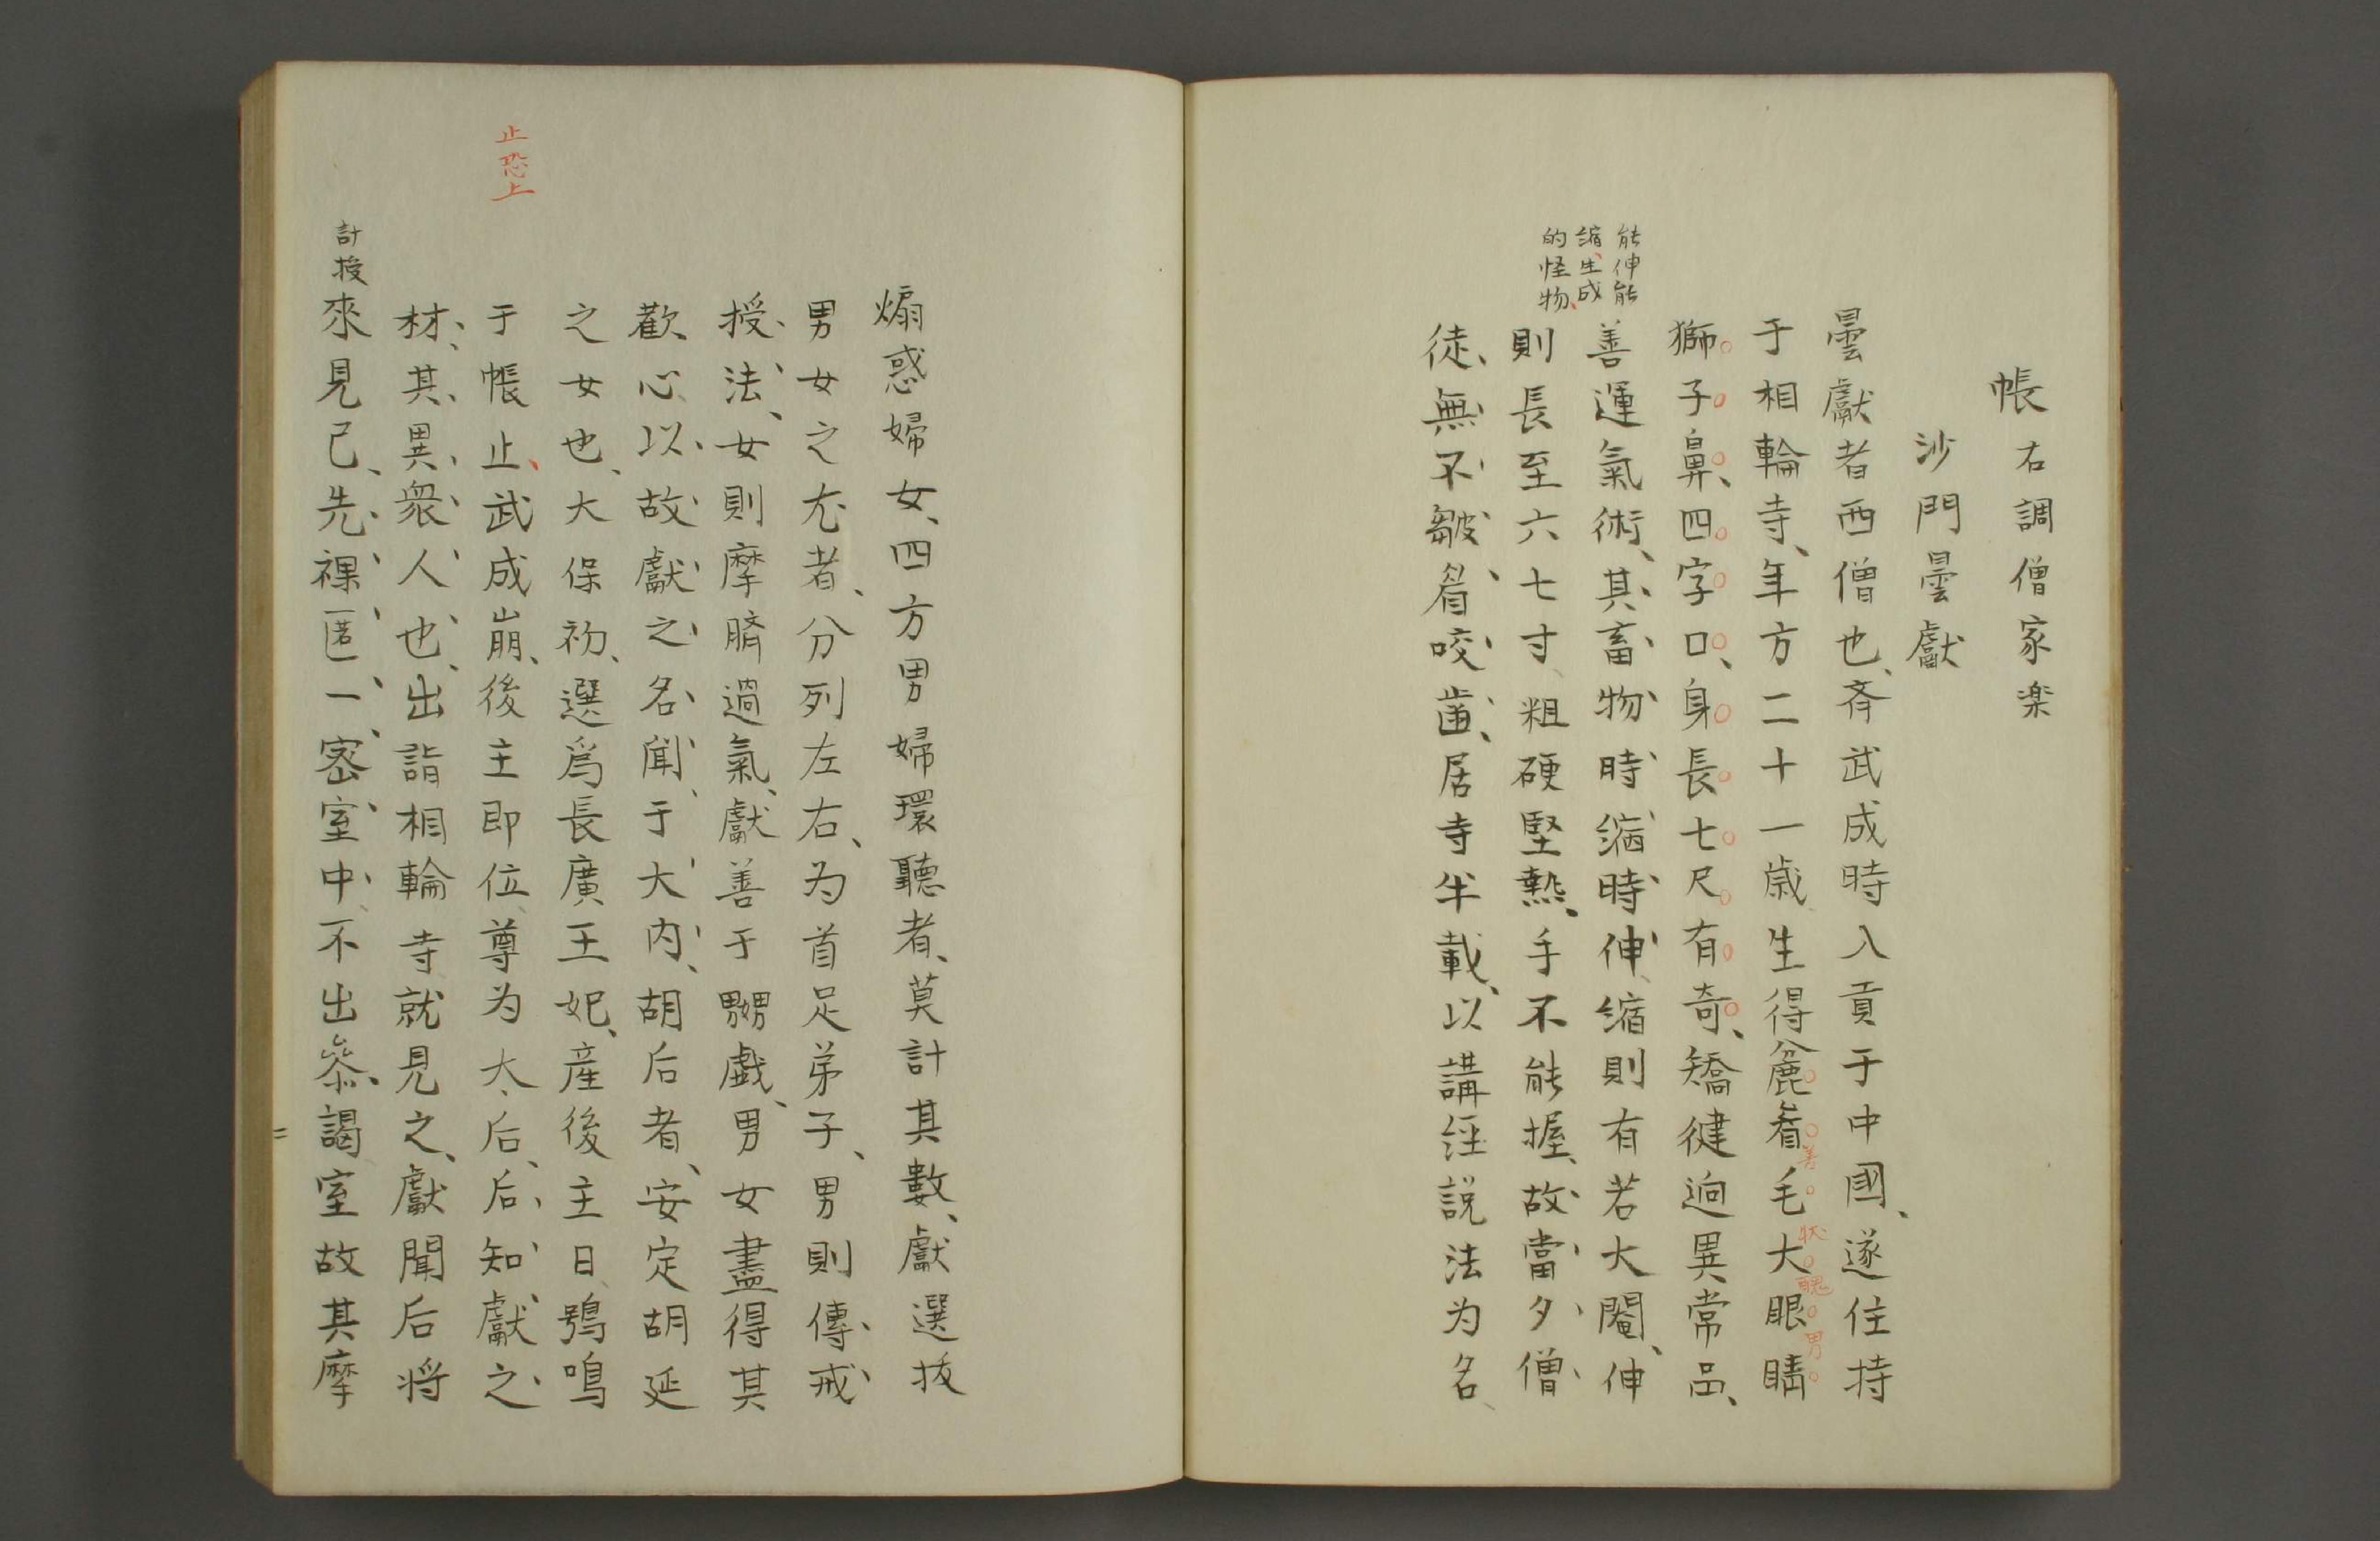 帳 右調僧家楽
沙門曇獻
曇獻者西僧也、斉武成時入貢于中國、遂住持
于相輪寺、年方二十一歳生得麁眉毛大眼睛
善状醜男
獅子鼻、四字口、身長七尺有奇、矯健逈異常品、
能伸能
縮、生成
的怪物、
善運氣術、其畜物時縮時伸、縮則有若大閹、伸
則長至六七寸、粗硬堅熱、手不能握、故當夕僧
徒、無不皺眉咬齒、居寺半載、以講経説法为名、
煽惑婦女、四方男婦環聽者、莫計其數、獻選抜
男女之尤者、分列左右、为首足弟子、男則傳戒
授法、女則摩臍過氣、獻善于嬲戯、男女盡得其
歡心以故獻之名聞于大内、胡后者、安定胡延
之女也、大保初、選爲長廣王妃、産後主日、鴞鳴
止恐上
于帳止、武成崩、後主即位、尊为太后、后知獻之
材、其異衆人也、出詣相輪寺就見之、獻聞后将
計授
來見己、先裸匿一密室中、不出叅謁室故其摩